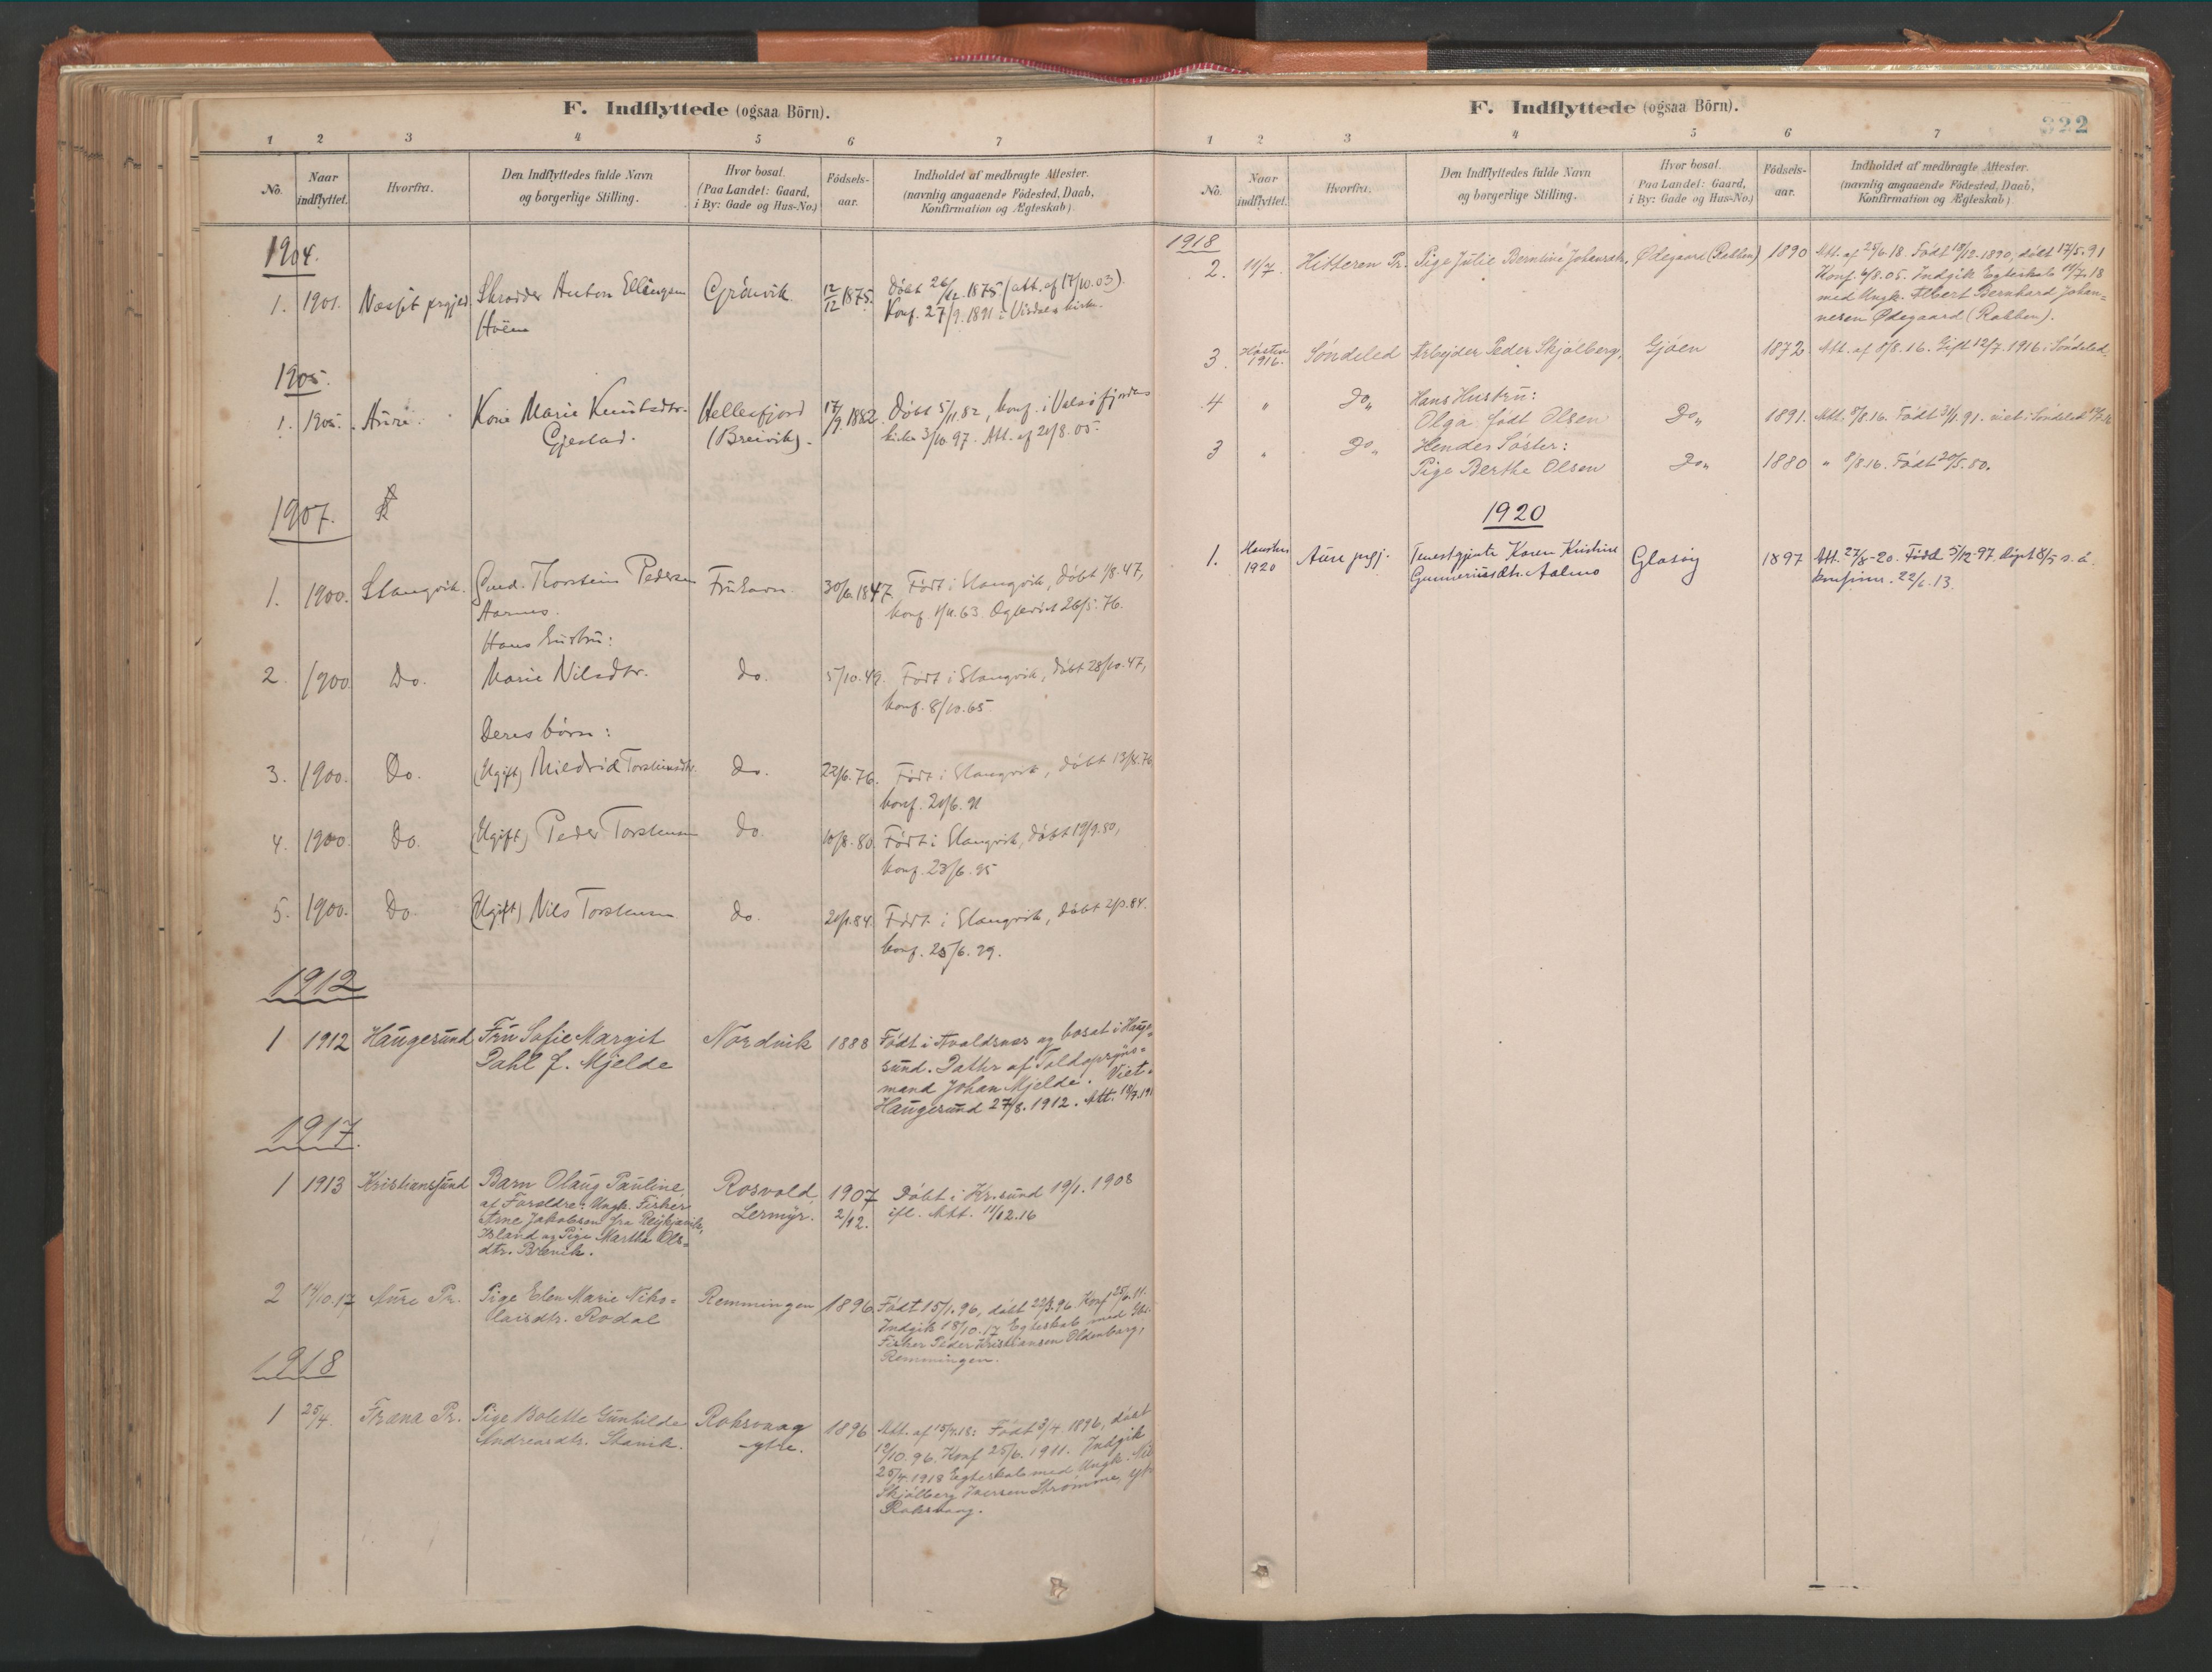 F. Indflyttede (ogsaa Börn).
1 2 3 4 5 6 7
No. Naar indflyttet. Hvorfra. Den Indflyttedes fulde Navn og borgerlige Stilling. Hvor bosat. (Paa Landet: Gaard, i By: Gade og Hus-No.) Födsels-aar. Indholdet af medbragte Attester. (navnlig angaaende Födested, Daab, Konfirmation og Ægteskab).
1904.
1. 1901. Nesset prgjld. Skrædder Anton Ellingsen Grönvik 12/12 1875. Döbt 26/12.1875 (att. af 17/10.03)
Konf. 27/9.1891 i Visdals kirke.
1905.
1. 1905. Aure. Marie Knutsdtr. Hellesfjord 17/9.1882 Döbt 5/11 82, konf. i Valsöfjordens
Gjestad. (Breivik). kirke 3/10.97. Att. af 21/8.05.
1907.
1. 1900. Stangvik. Thorstein Pedersen 30/6.1847. Født i Stangvik, döbt 1/8.47,
Aarnes. konf. 1/11.63. 26/5.76.
Hans hustru:
2. 1900. Do. Marie Nilsdtr. do. 5/10.49. Født i Stangvik, döbt 28/10.47,
konf. 8/10.65
Deres börn:
3. 1900. Do. (Ugift) Mildrid Torsteinsdtr. do. 22/6.76. Født i Stangvik, döbt 13/8.76
konf. 21/6.91
4. 1900. Do. (Ugift) Peder Torstensen do. 10/8.80. Født i Stangvik, döbt 19/9.80,
konf. 23/6.95
5. 1900. Do. (Ugift) Nils Torstensen do. Født i Stangvik, döbt
konf. 25/6.99.
1912
1 1912 Haugesund Fru Sofie Margit Nordvik 1888 Födt i Avaldsnes og bosat i Hauge-
Dahl f. Mjelde sund. Datter af Toldopsyns-
mand Johan Mjelde. Viet i
Haugesund 27/8.1912. Att.
1917.
1 1913 Kristiansund Barn Olaug Pauline, Rosvold 1907 Döbt i Kr.sund 19/1.1908
af Foreldre: Ungk. Fisker Lermyr. 2/12. ifl. Att. 11/12.16
Arne Jakobsen fra Reykjavik,
Island og Pige Martha Ols-
dtr. Brevik.
2 14/10.17 Aure Pr. Pige Elen Marie Niko- Remmingen 1896 Födt 15/1.96, döbt 22/3.96. Konf 25/6.11.
laisdtr. Rodal Indgik 18/10.17 Egteskab med
Fisker Peder Kristiansen Oldenborg,
Remmingen.
1918
1 25/4. Fræna Pr. Pige Bolette Gunhilde Roksvaag 1896 Att. af 15/4.18: Födt 3/4.1896, döbt
Andreasdtr. Stavik. ytre. 19/10.96. Konf 25/6.1911. Indgik
25/4.1918 Egteskab med Ungk.
Skjölberg Iversen Strömme, yt.
Roksvaag.
F. Indflyttede (ogsaa Börn).
322
1 2 3 4 5 6 7
No. Naar indflyttet. Hvorfra. Den Indflyttedes fulde Navn og borgerlige Stilling. Hvor bosat. (Paa Landet: Gaard, i By: Gade og Hus-No.) Födsels-aar. Indholdet af medbragte Attester. (navnlig angaaende Födested, Daab, Konfirmation og Ægteskab).
1918
2. 11/7. Hitteren Pr. Pige Julie Berntine Johansdtr. Ødegaard (Rabben) 1890 Att. af 25/6.18. Födt 18/12.1890, döbt 17/5.91
Konf. 4/8.05. Indgik Egteskab 11/7.18
med Ungk. Albert Bernhard Johan-
nesen Ødegaard (Rabben).
3. Hösten 1916. Söndeled Arbejder Peder Skjölberg, Gjöen 1872. Att. af 8/8.16. Gift 12/7.1916 i Söndeled.
4 " Do" Hans Hustru:
Olga födt Olsen Do" 1891. Att. 8/8.16. Födt 31/1.91. viet i Söndeled
3 " Do" Hendes Söster:
Pige Berthe Olsen Do" 1880 " 8/8.16. Födt 20/5.80.
1920
1. Hausten 1920 Aure prgj. Tenestgjente Karen Kristine Glasöy 1897 Att. 27/8-20. Född 5/12-97. döpt 8/5 s.å.
Gunneriusdtr. Aalmo konfirm. 22/6.13.